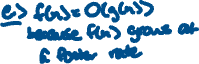 c) f(n) = O(g(n))
because f(n) grows at
a faster rate